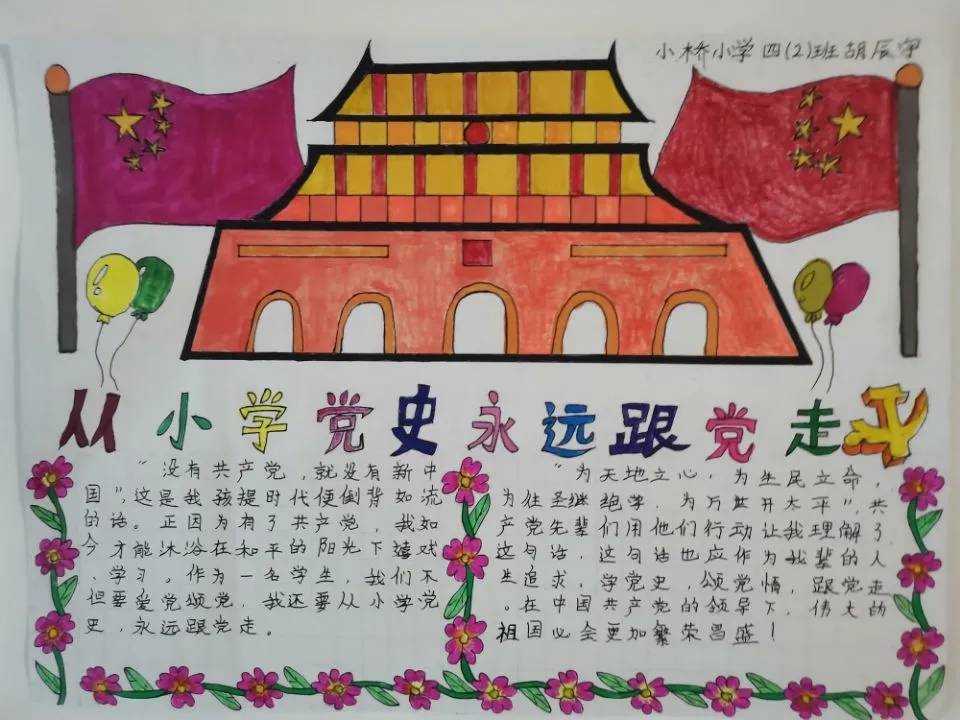 小桥小学四(2)班胡辰宇
从小学党史永远跟党走
"没有共产党，就没有新中
国"，这是我孩提时代便倒背如流
的话。正因为有了共产党，我如
今才能沐浴在和平的阳光下嬉戏
、学习。作为一名学生，我们不
但要爱党颂党，我还要从小学党
史，永远跟党走。
"为天地立心，为生民立命，
为往圣继绝学，为万世开太平"，共
产党先辈们用他们行动让我理解了
这句话，这句话也应作为我辈的人
生追求，学党史，颂党情，跟党走
。在中国共产党的领导下，伟大的
祖国必会更加繁荣昌盛！